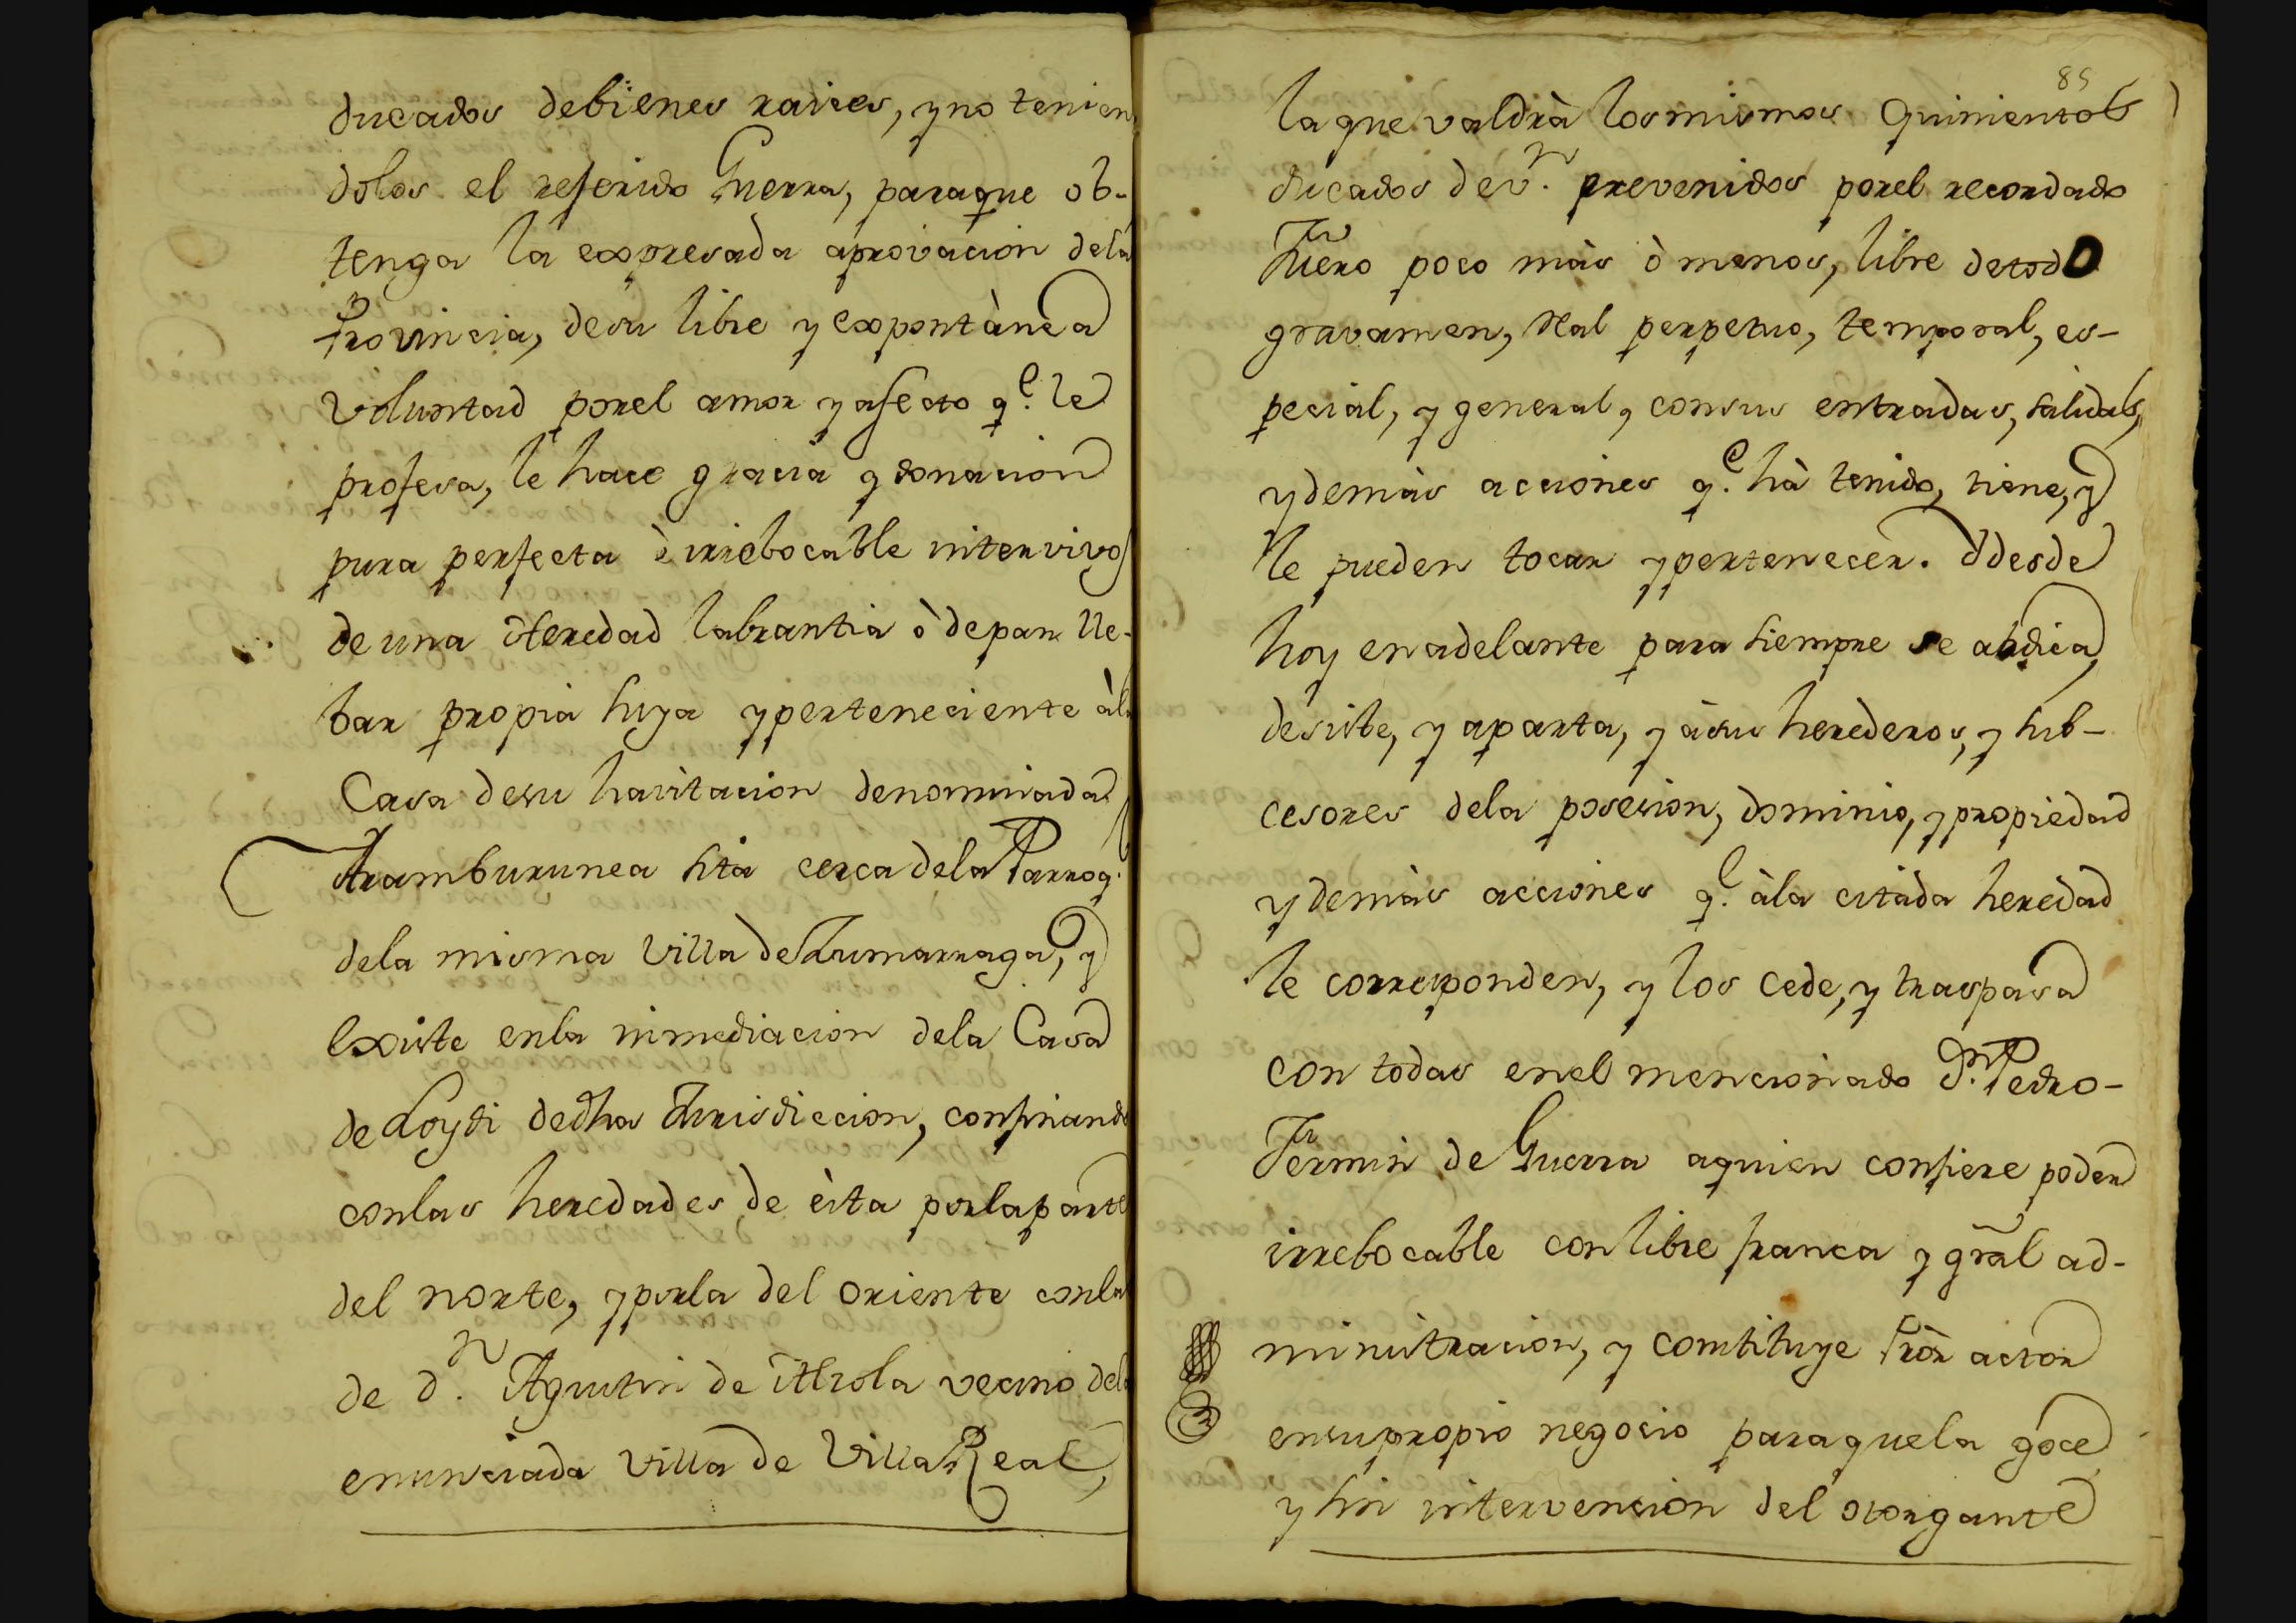 ducados debienes raices, y no tenien
dolos el referido Guerra, paraque ob-
tenga la expresada aprovacion dela
Provincia, desu libre y expontànea
voluntad porel amor y afecto q.e le
profesa, le hace gracia y donacion
pura perfecta è irrebocable intervivos
de una Heredad labrantia ò depan lle-
bar propia suya y perteneciente àla
Casa desu havitacion denominada
Aramburunea sita cerca dela Parroq.
dela misma Villa de Zumarraga, y
existe enla inmediacion dela Casa
de Loydi dedha Jurisdiccion, confinando
conlas heredades de èsta porlaparte
del norte, y porla del oriente conla
de d.n Agustin de Mirola vecino dela
enunciada Villa de VillaReal,
85
laque valdrà losmismos quinientos
ducados de v.n prevenidos porel recordado
Fuero poco màs ò menos, libre detodo
gravamen, Real perpetuo, temporal, es-
pecial, y general, y consus entradas, salidas,
y demàs acciones q.e hà tenido, tiene, y
le pueden tocar y pertenecer. Y desde
hoy enadelante para siempre se abdica
desiste, y aparta, y àsus herederos, y sub-
cesores dela posesion, dominio, y propiedad
y demàs acciones q.e àla citàda heredad
le corresponden, y los cede, y traspasa
con todas enel mencionado D.n Pedro-
Fermin de Guerra aquien confiere poder
irrebocable con libre franca y gral ad-
ministracion, y constituye Pròr actor
ensupropio negocio paraquela goce
y sin intervencion del otorgante